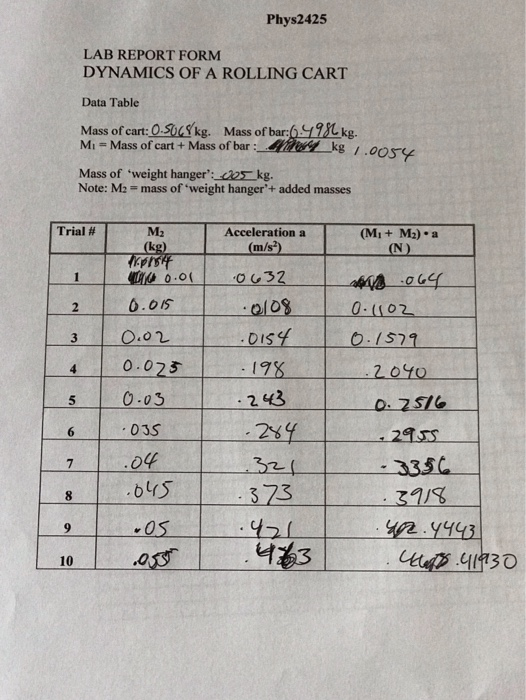 Phys2425
LAB REPORT FORM
DYNAMICS OF A ROLLING CART
Data Table
Mass of cart: 0.5068 kg. Mass of bar: 0.4986 kg.
M₁ = Mass of cart + Mass of bar : kg 1.0054
Mass of 'weight hanger': .005 kg.
Note: M₂ = mass of 'weight hanger'+ added masses
Trial # M₂ (kg) Acceleration a (m/s²) (M₁ + M₂) • a (N)
1 0.01 .0632 .064
2 0.015 .0108 0.1102
3 0.02 .0154 0.1579
4 0.025 .198 .2040
5 0.03 .243 0.2516
6 .035 .284 .2955
7 .04 .321 .3356
8 .045 .373 .3918
9 .05 .421 .4443
10 .055 .41930